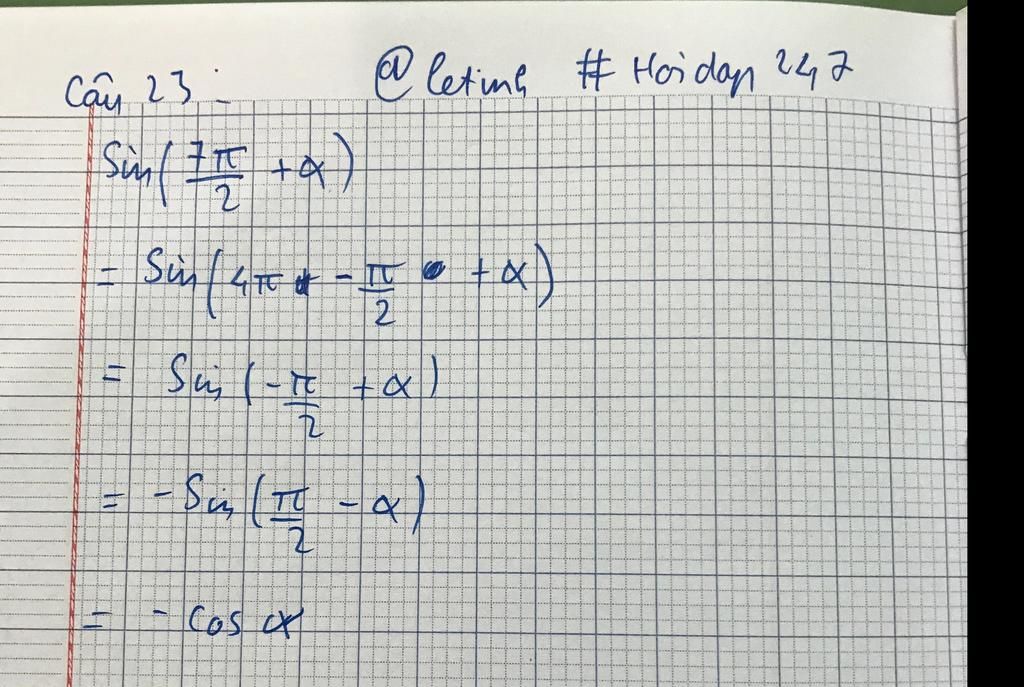 Câu 23:
@letinh # Hoidap 247
Sin(7π/2 + α)
= Sin(4π - π/2 + α)
= Sin(-π/2 + α)
= -Sin(π/2 - α)
= - cos α